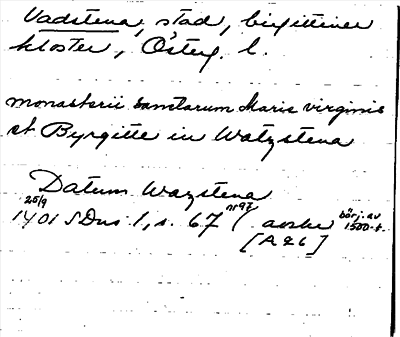 Vadstena, stad, birgittiner
kloster, Österg. l.
monasterii sanctarum Marie virginis
et Byrgitte in Watzstena
Datum Wazstena
25/9 nr 97 börj. av
1401 SDns 1, s. 67 ( avskr 1500-t.
[A 26]